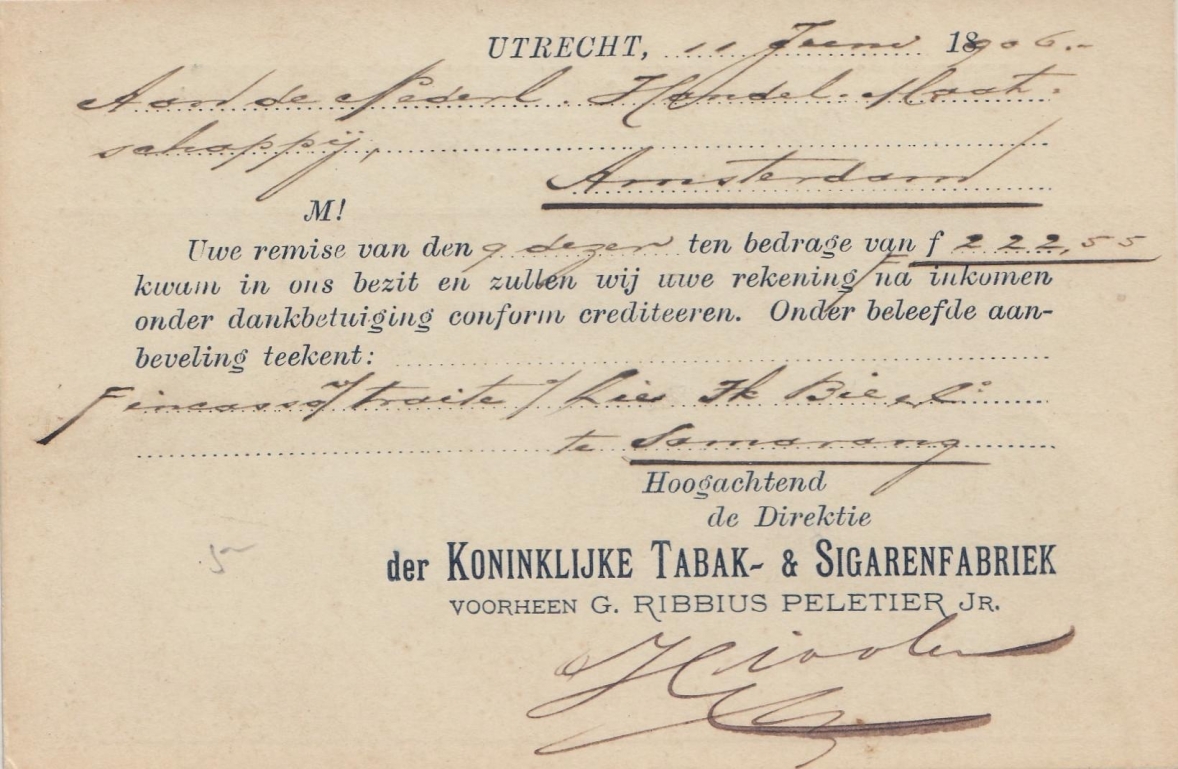 UTRECHT, 11 Juni 1906.-
Aan de Nederl. Handel-Maat-
schappij,
Amsterdam
M!
Uwe remise van den 9 dezer ten bedrage van f 222,55
kwam in ons bezit en zullen wij uwe rekening na inkomen
onder dankbetuiging conform crediteeren. Onder beleefde aan-
beveling teekent:
incasso traite
te Samarang
Hoogachtend
de Direktie
der KONINKLIJKE TABAK- & SIGARENFABRIEK
VOORHEEN G. RIBBIUS PELETIER JR.